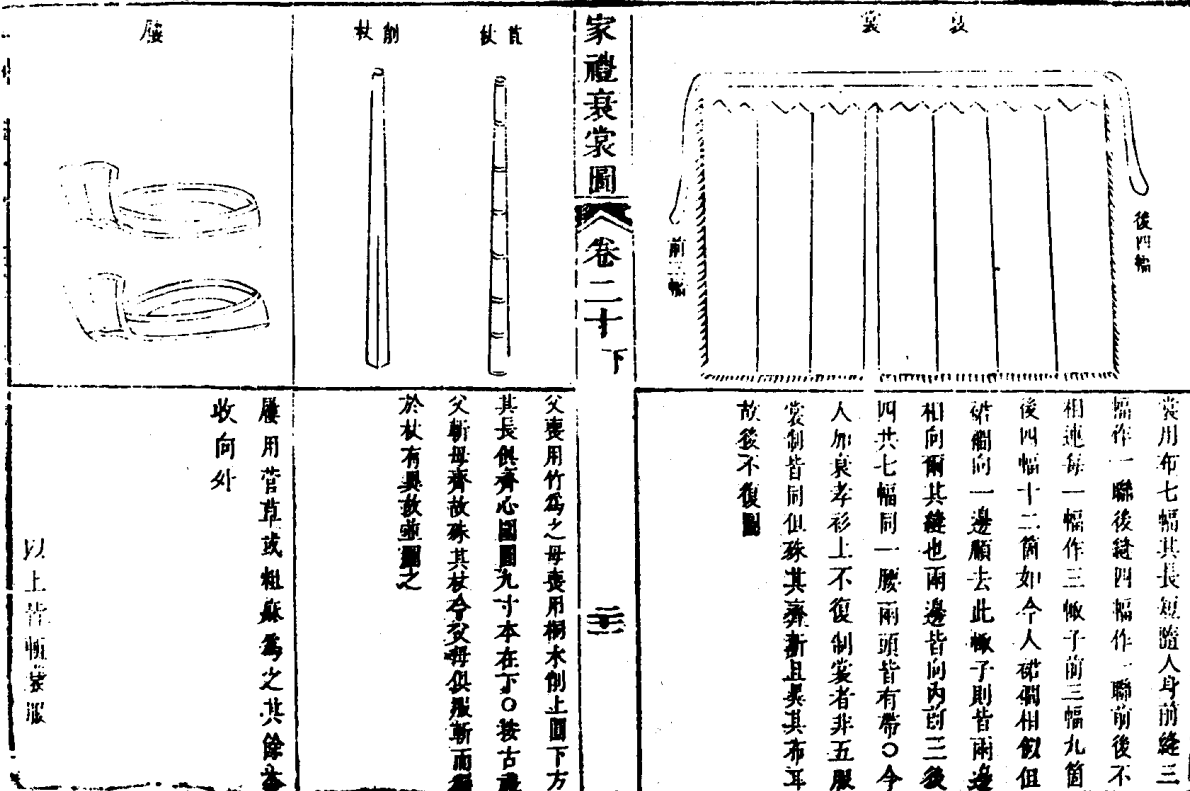 衰裳
後四幅
前三幅
裳用布七幅其長短隨人身前縫三
幅作一聯後縫四幅作一聯前後不
相連每一幅作三㡇子前三幅九箇
後四幅十二箇如今人裙襉相似但
裙襉向一邊順去此㡇子則皆兩邊
相向爾其縫也兩邊皆向內前三後
四共七幅同一腰兩頭皆有帶○今
人加衰孝衫上不復制裳者非五服
裳制皆同但殊其齊斬且異其布耳
故後不復圖
家禮衰裳圖
卷二十下
苴杖
削杖
父喪用竹爲之母喪用桐木削上圓下方
其長俱齊心圍圓九寸本在下○按古禮
父斬母齊故殊其杖今父母俱服斬而獨
於杖有異故並圖之
屨
屨用菅草或粗麻爲之其餘
收向外
以上皆斬衰服